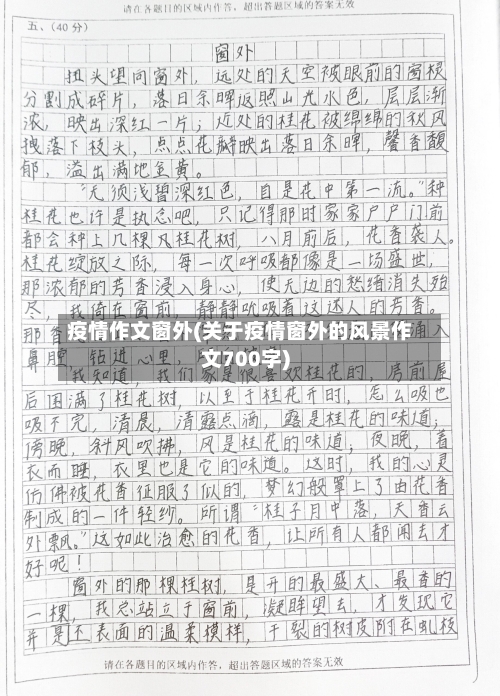 请在各题目的区域内作答，超出答题区域的答案无效
五、(40分)
窗外
扭头望向窗外，远处的天空被眼前的窗棂
分割成碎片，落日余晖返照山光水色，层层渐
浓，映出深红一片；近处的桂花被绵绵的秋风
拽落下枝头，点点花瓣映出落日余晖，馨香馥
郁，溢出满地金黄。
"无须浅碧深红色，自是花中第一流。"种
桂花也许是执念吧，只记得那时家家户户门前
都会种上几棵桂花树，八月前后，花香袭人。
桂花绽放之际，每一次呼吸都像是一场盛世，
那浓郁的芳香浸入身心，使无边的愁绪消失殆
尽，我倚在窗前，静静吮吸着这迷人的芳香。
那香
疫情作文窗外(关于疫情窗外的风景作
文700字)
涌入
鼻腔，钻进心里，
我知道，我们家是很喜欢桂花的，房前屋
后围满了桂花树，以至于桂花开时，怎么吸也
吸不完，清晨，清露点滴，露是桂花的味道；
傍晚，斜风吹拂，风是桂花的味道；夜晚，着
衣而睡，衣里也是它的味道。这时，我的心灵
仿佛被花香征服了似的，梦幻般罩上了由花香
制成的一件轻纱。所谓"桂子月中落，天香云
外飘。"这如此治愈的花香，让所有人都闻去才
好呢！
窗外的那棵桂树，是开的最盛大、最香的
一棵，我总站立于窗前，凝眸望去，才发现它
并是不表面的温柔模样，干裂的树皮附在虬枝
请在各题目的区域内作答，超出答题区域的答案无效